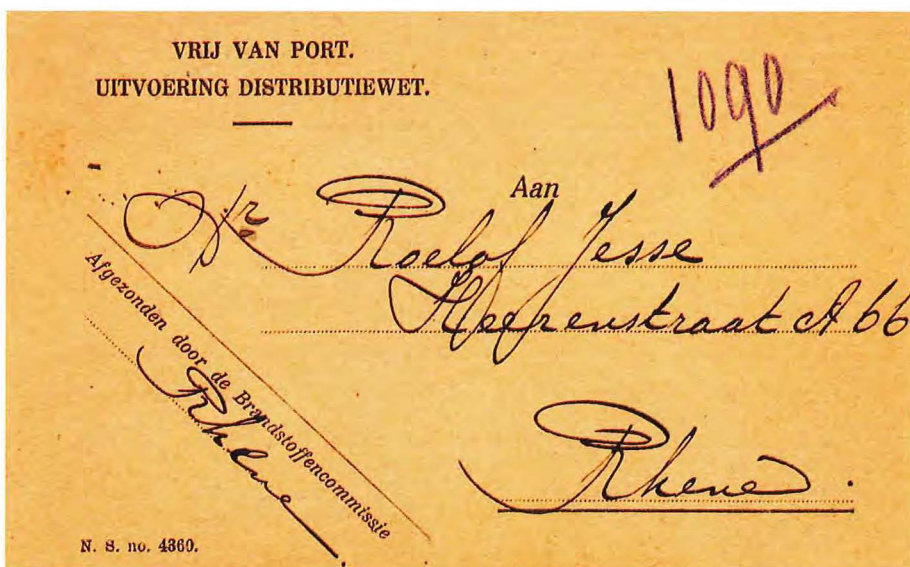 VRIJ VAN PORT.
UITVOERING DISTRIBUTIEWET.
1090
Aan
Hr Roelof Jesse
Heerenstraat A 66
Rhene.
Afgezonden door de Brandstoffencommissie
Rhene
N. S. no. 4360.